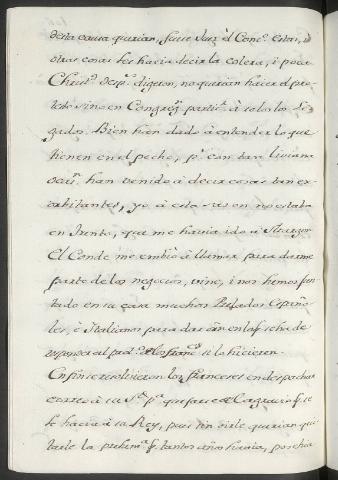 desta causa querian, fuese Juez el Conc.º estas, i
otras cosas les hacia decir la colera, i poca
Christ.d desp.s digeron, no querian hacer el pro
testo sino en Congreg.n partic.r à solos los Le
gados. Bien hien dado à entender lo que
tienen en el pecho, p.s con tan liviana
ocas.n han venido à decir cosas tan ex
orbitantes, yo à esta no estaba
en Trento, que me havia ido à
El Conde me embiò à llamar para darme
parte de los negocios, vine, i nos hemos jun
tado en su casa muchos Prelados Españo
les, è Italianos para dar orden en la q.e se ha de
responder al prot.º de los franc.s si lo hicieren.
En fin se resolvieron los franceses en despachar
correo à su S.d p.a q.e
se hacia à su Rey, pues sin oirle querian qui
tarle la prehem.a q.e tantos años havia, posehia